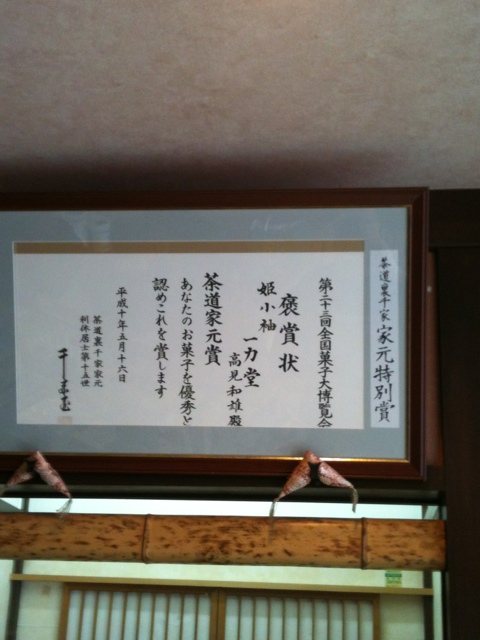 茶道裏千家 家元特別賞
第二十三回全国菓子大博覧会
褒賞状
姫小袖
一力堂
高見和雄殿
茶道家元賞
あなたのお菓子を優秀と
認めこれを賞します
平成十年五月十六日
茶道裏千家家元
利休居士第十五世